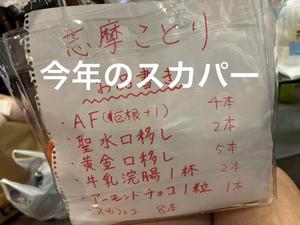 志摩ことり
今年のスカパー
お品書き
・AF(巨根+1) 4本
・聖水口移し 2本
・黄金口移し 5本
・牛乳浣腸1杯 2本
・アーモンドチョコ1粒 1本
・スカフェラ 8本